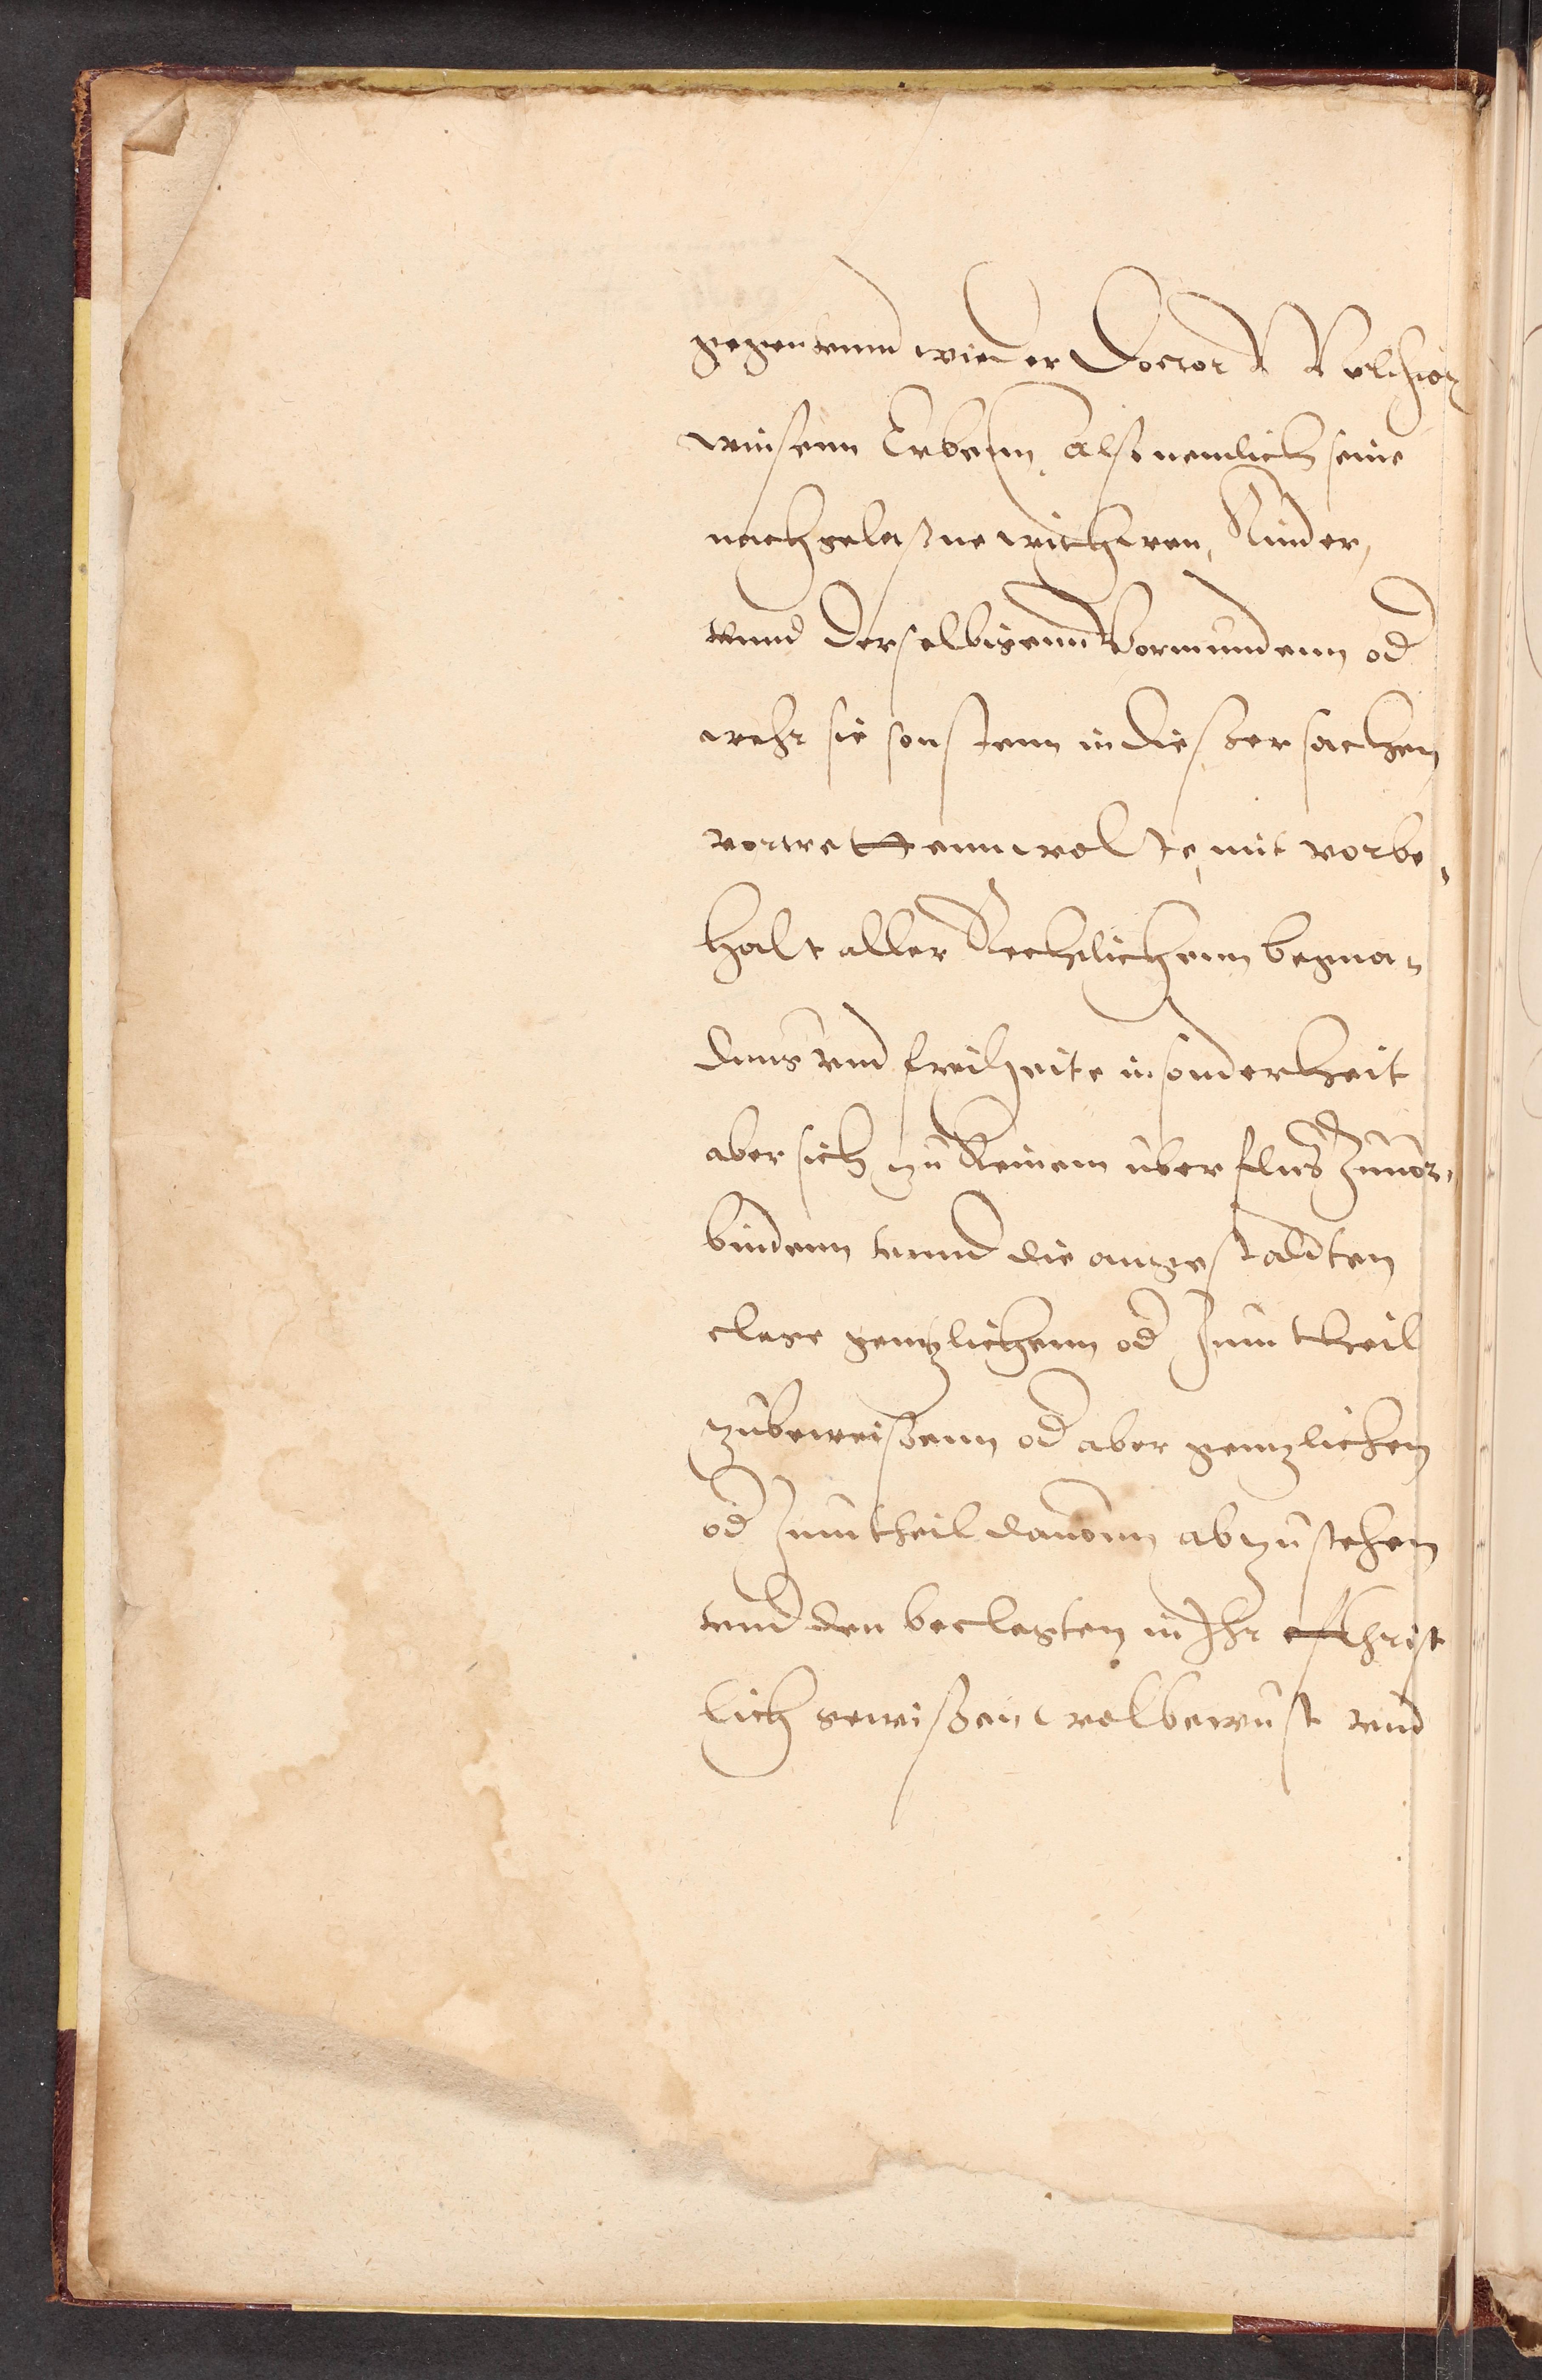 gegen vnnd wieder Doctor Melchior
winsenn Erbenn, Alß nemlich seine
nachgelaßne witbwen, Kinder,
vnnd derselbigenn Vormundenn od
wehr sie sonstenn in dießer sachen
vortrettenn wolte, mit vorbe-
halt aller Rechtlichenn begna-
dung vnd freiheite insonderheit
aber sich zu Keinem überflus Zuuor-
bindenn vnnd die angestaldten
clage gentzlichenn od Zum theil
zubeweißenn od aber gentzlichen
od Zum theil dauonn abzustehen
vnd den beclagten in Ihr Christ
lich gewißen wolbewust vnd